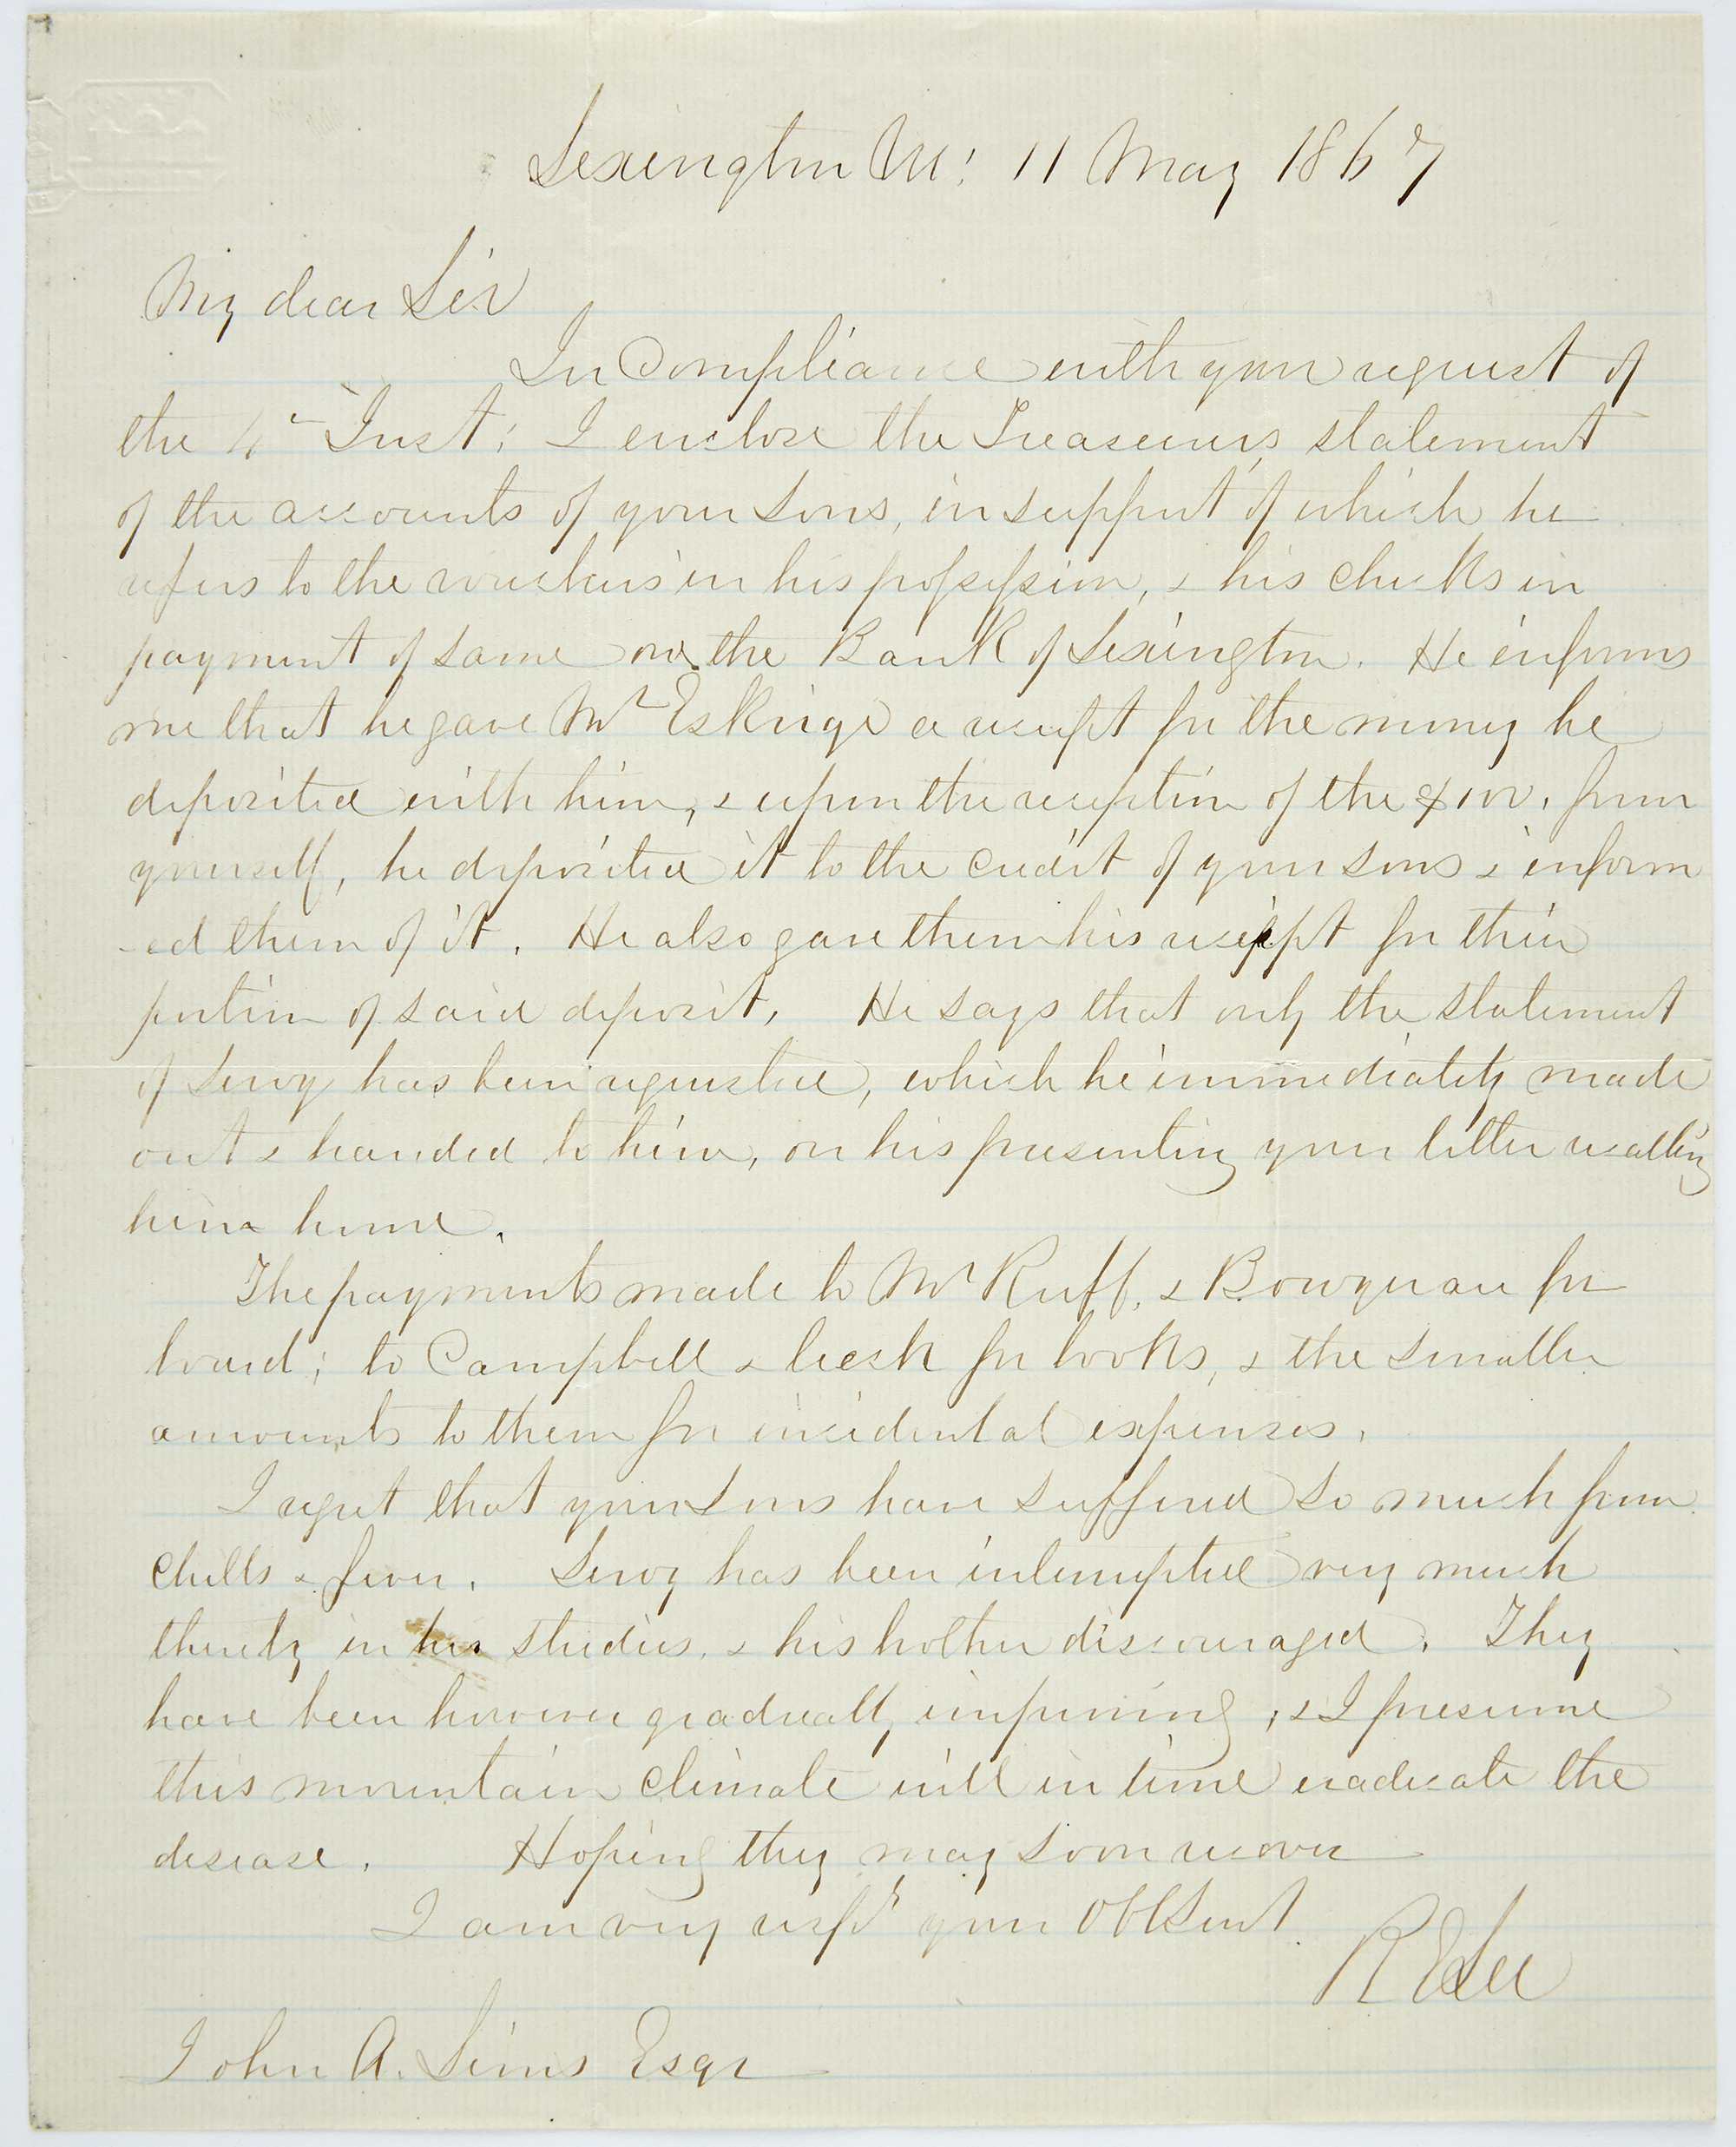 Lexington Va: 11 May 1867
My dear Sir
In Compliance with your request of
the 4th Inst: I enclose the Treasurers statement
of the accounts of your sons, in support of which he
refers to the vouchers in his possession, & his checks in
payment of same on the Bank of Lexington. He informs
me that he gave Mr Eskrige a receipt for the money he
deposited with him, & upon the reception of the $100. from
yourself, he deposited it to the credit of your sons & inform
-ed them of it. He also gave them his receipt for their
portion of said deposit. He says that only the statement
of Leroy has been requested, which he immediately made
out & handed to him, on his presenting your letter recalling
him home.
The payments made to Mr Ruff, & Bowyer are for
board; to Campbell & for books, & the smaller
amounts to them for incidental expenses.
I regret that your sons have suffered so much from
chills & fever. Leroy has been interrupted very much
thereby in his studies, & his brother discouraged. They
have been however gradually improving, & I presume
this mountain climate will in time eradicate the
disease. Hoping they may soon recover
I am very respt your Obt Servt
R E Lee
John A. Sims Esqr